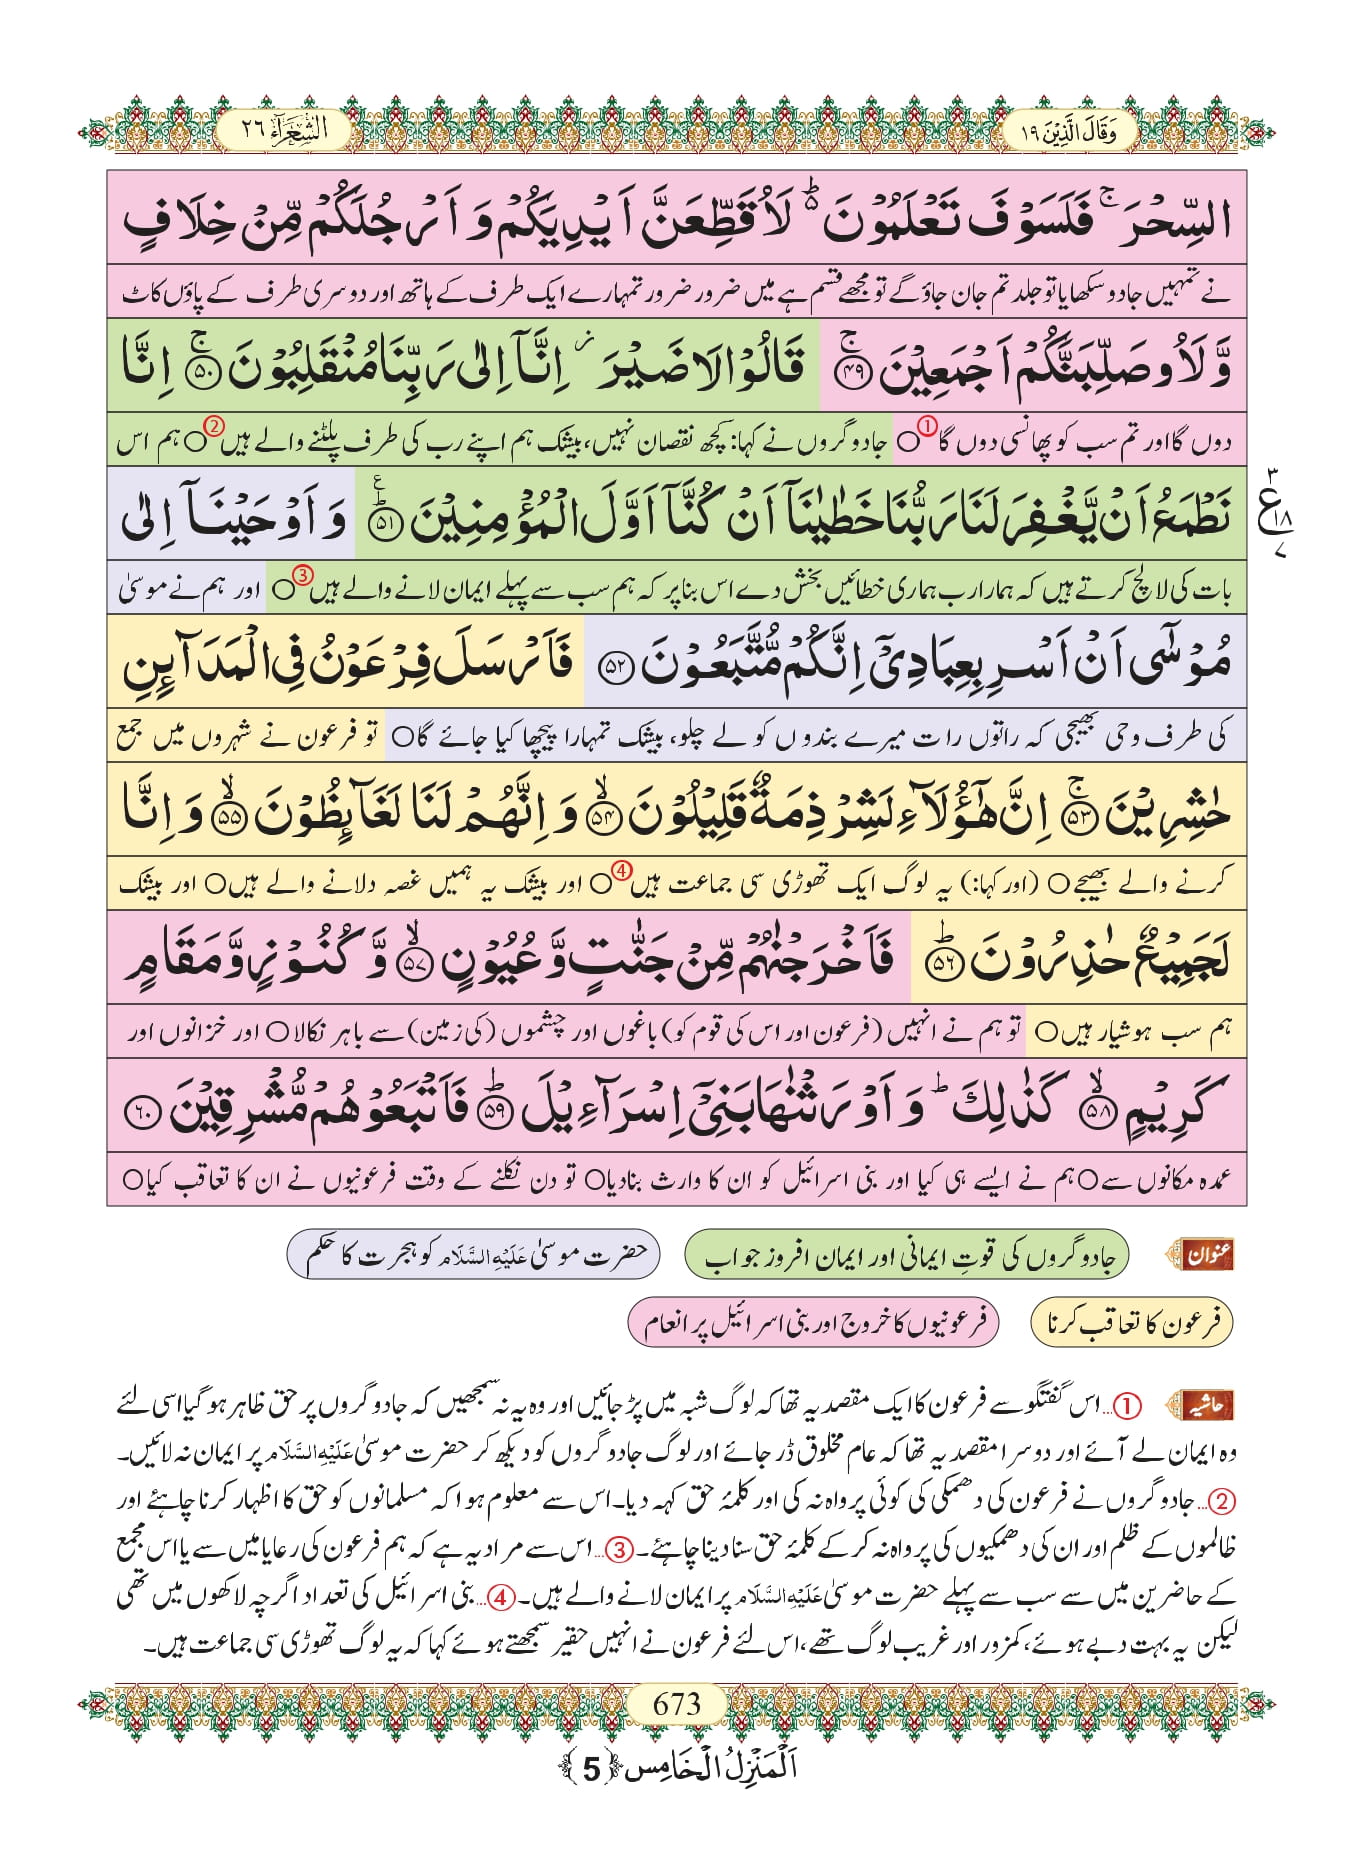 وَقَالَ الَّذِیْنَ ١٩
الشُّعَرَآء ٢٦
السِّحْرَ ۚ فَلَسَوْفَ تَعْلَمُوْنَ ۬ؕ لَاُقَطِّعَنَّ اَیْدِیَكُمْ وَ اَرْجُلَكُمْ مِّنْ خِلَافٍ
نے تمہیں جادو سکھایا تو جلد تم جان جاؤ گے تو مجھے قسم ہے میں ضرور ضرور تمہارے ایک طرف کے ہاتھ اور دوسری طرف کے پاؤں کاٹ
وَّ لَاُوصَلِّبَنَّكُمْ اَجْمَعِیْنَ ۚ﴿۴۹﴾ قَالُوْا لَا ضَیْرَ ؗ اِنَّاۤ اِلٰى رَبِّنَا مُنْقَلِبُوْنَ ۚ﴿۵۰﴾ اِنَّا
دوں گا اور تم سب کو پھانسی دوں گا① ○ جادوگروں نے کہا: کچھ نقصان نہیں، بیشک ہم اپنے رب کی طرف پلٹنے والے ہیں② ○ ہم اس
نَطْمَعُ اَنْ یَّغْفِرَ لَنَا رَبُّنَا خَطٰیٰنَاۤ اَنْ كُنَّاۤ اَوَّلَ الْمُؤْمِنِیْنَ ؕ﴿۵۱﴾ ع وَ اَوْحَیْنَاۤ اِلٰى
٣
ع
١٨
٧
بات کی لالچ کرتے ہیں کہ ہمارا رب ہماری خطائیں بخش دے اس بنا پر کہ ہم سب سے پہلے ایمان لانے والے ہیں③ ○ اور ہم نے موسیٰ
مُوْسٰۤى اَنْ اَسْرِ بِعِبَادِیْۤ اِنَّكُمْ مُّتَّبَعُوْنَ ﴿۵۲﴾ فَاَرْسَلَ فِرْعَوْنُ فِی الْمَدَآىٕنِ
کی طرف وحی بھیجی کہ راتوں رات میرے بندوں کو لے چلو، بیشک تمہارا پیچھا کیا جائے گا ○ تو فرعون نے شہروں میں جمع
حٰشِرِیْنَ ۚ﴿۵۳﴾ اِنَّ هٰۤؤُلَآءِ لَشِرْذِمَةٌ قَلِیْلُوْنَ ۙ﴿۵۴﴾ وَ اِنَّهُمْ لَنَا لَغَآىٕظُوْنَ ۙ﴿۵۵﴾ وَ اِنَّا
کرنے والے بھیجے ○ (اور کہا:) یہ لوگ ایک تھوڑی سی جماعت ہیں④ ○ اور بیشک یہ ہمیں غصہ دلانے والے ہیں ○ اور بیشک
لَجَمِیْعٌ حٰذِرُوْنَ ؕ﴿۵۶﴾ فَاَخْرَجْنٰهُمْ مِّنْ جَنّٰتٍ وَّ عُیُوْنٍ ۙ﴿۵۷﴾ وَّ كُنُوْزٍ وَّ مَقَامٍ
ہم سب ہوشیار ہیں ○ تو ہم نے انہیں (فرعون اور اس کی قوم کو) باغوں اور چشموں (کی زمین) سے باہر نکالا ○ اور خزانوں اور
كَرِیْمٍ ۙ﴿۵۸﴾ كَذٰلِكَ ؕ وَ اَوْرَثْنٰهَا بَنِیْۤ اِسْرَآءِیْلَ ؕ﴿۵۹﴾ فَاَتْبَعُوْهُمْ مُّشْرِقِیْنَ ﴿۶۰﴾
عمدہ مکانوں سے ○ ہم نے ایسے ہی کیا اور بنی اسرائیل کو ان کا وارث بنادیا ○ تو دن نکلنے کے وقت فرعونیوں نے ان کا تعاقب کیا ○
عنوان جادوگروں کی قوتِ ایمانی اور ایمان افروز جواب حضرت موسیٰ عَلَیْهِ السَّلَام کو ہجرت کا حکم
فرعون کا تعاقب کرنا فرعونیوں کا خروج اور بنی اسرائیل پر انعام
حاشیہ ①... اس گفتگو سے فرعون کا ایک مقصد یہ تھا کہ لوگ شبہ میں پڑ جائیں اور وہ یہ نہ سمجھیں کہ جادوگروں پر حق ظاہر ہو گیا اسی لئے
وہ ایمان لے آئے اور دوسرا مقصد یہ تھا کہ عام مخلوق ڈر جائے اور لوگ جادوگروں کو دیکھ کر حضرت موسیٰ عَلَیْهِ السَّلَام پر ایمان نہ لائیں۔
②... جادوگروں نے فرعون کی دھمکی کی کوئی پرواہ نہ کی اور کلمۂ حق کہہ دیا۔ اس سے معلوم ہوا کہ مسلمانوں کو حق کا اظہار کرنا چاہئے اور
ظالموں کے ظلم اور ان کی دھمکیوں کی پرواہ نہ کر کے کلمۂ حق سنا دینا چاہئے۔ ③... اس سے مراد یہ ہے کہ ہم فرعون کی رعایا میں سے یا اس مجمع
کے حاضرین میں سے سب سے پہلے حضرت موسیٰ عَلَیْهِ السَّلَام پر ایمان لانے والے ہیں۔ ④... بنی اسرائیل کی تعداد اگرچہ لاکھوں میں تھی
لیکن یہ بہت دبے ہوئے، کمزور اور غریب لوگ تھے، اس لئے فرعون نے انہیں حقیر سمجھتے ہوئے کہا کہ یہ لوگ تھوڑی سی جماعت ہیں۔
673
اَلْمَنْزِلُ الْخَامِس ﴿5﴾